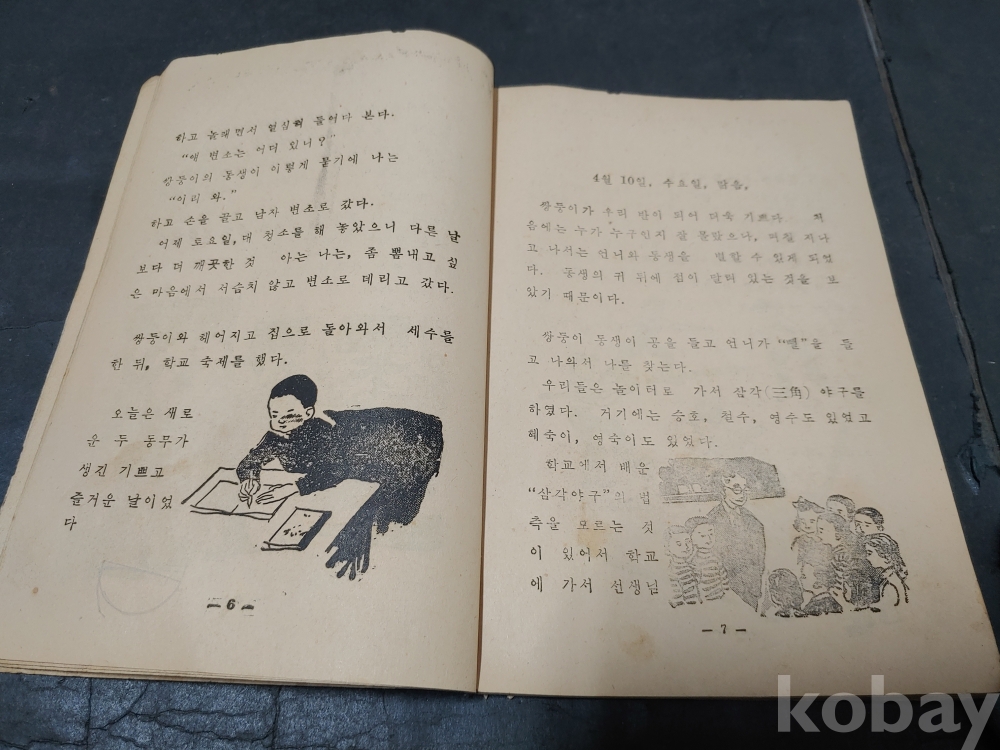 하고 놀래면서 열심히 들여다 본다.
"얘 변소는 어디 있니?"
쌍둥이의 동생이 이렇게 묻기에 나는
"이리 와."
하고 손을 끌고 남자 변소로 갔다.
어제 토요일, 대 청소를 해 놓았으니 다른 날
보다 더 깨끗한 것 아는 나는, 좀 뽐내고 싶
은 마음에서 서슴치 않고 변소로 데리고 갔다.
쌍둥이와 헤어지고 집으로 돌아와서 세수를
한 뒤, 학교 숙제를 했다.
오늘은 새로
운 두 동무가
생긴 기쁘고
즐거운 날이었
다
— 6 —
4월 10일, 수요일, 맑음,
쌍둥이가 우리 반이 되어 더욱 기쁘다. 처
음에는 누가 누구인지 잘 몰랐으나, 며칠 지나
고 나서는 언니와 동생을 별할 수 있게 되었
다. 동생의 귀 뒤에 점이 발려 있는 것을 보
았기 때문이다.
쌍둥이 동생이 공을 들고 언니가 "뺄"을 들
고 나와서 나를 찾는다.
우리들은 놀이터로 가서 삼각(三角) 야구를
하였다. 거기에는 승호, 철수, 영수도 있었고
혜숙이, 영숙이도 있었다.
학교에서 배운
"삼각야구"의 법
측을 모르는 것
이 있어서 학교
에 가서 선생님
— 7 —
kobay